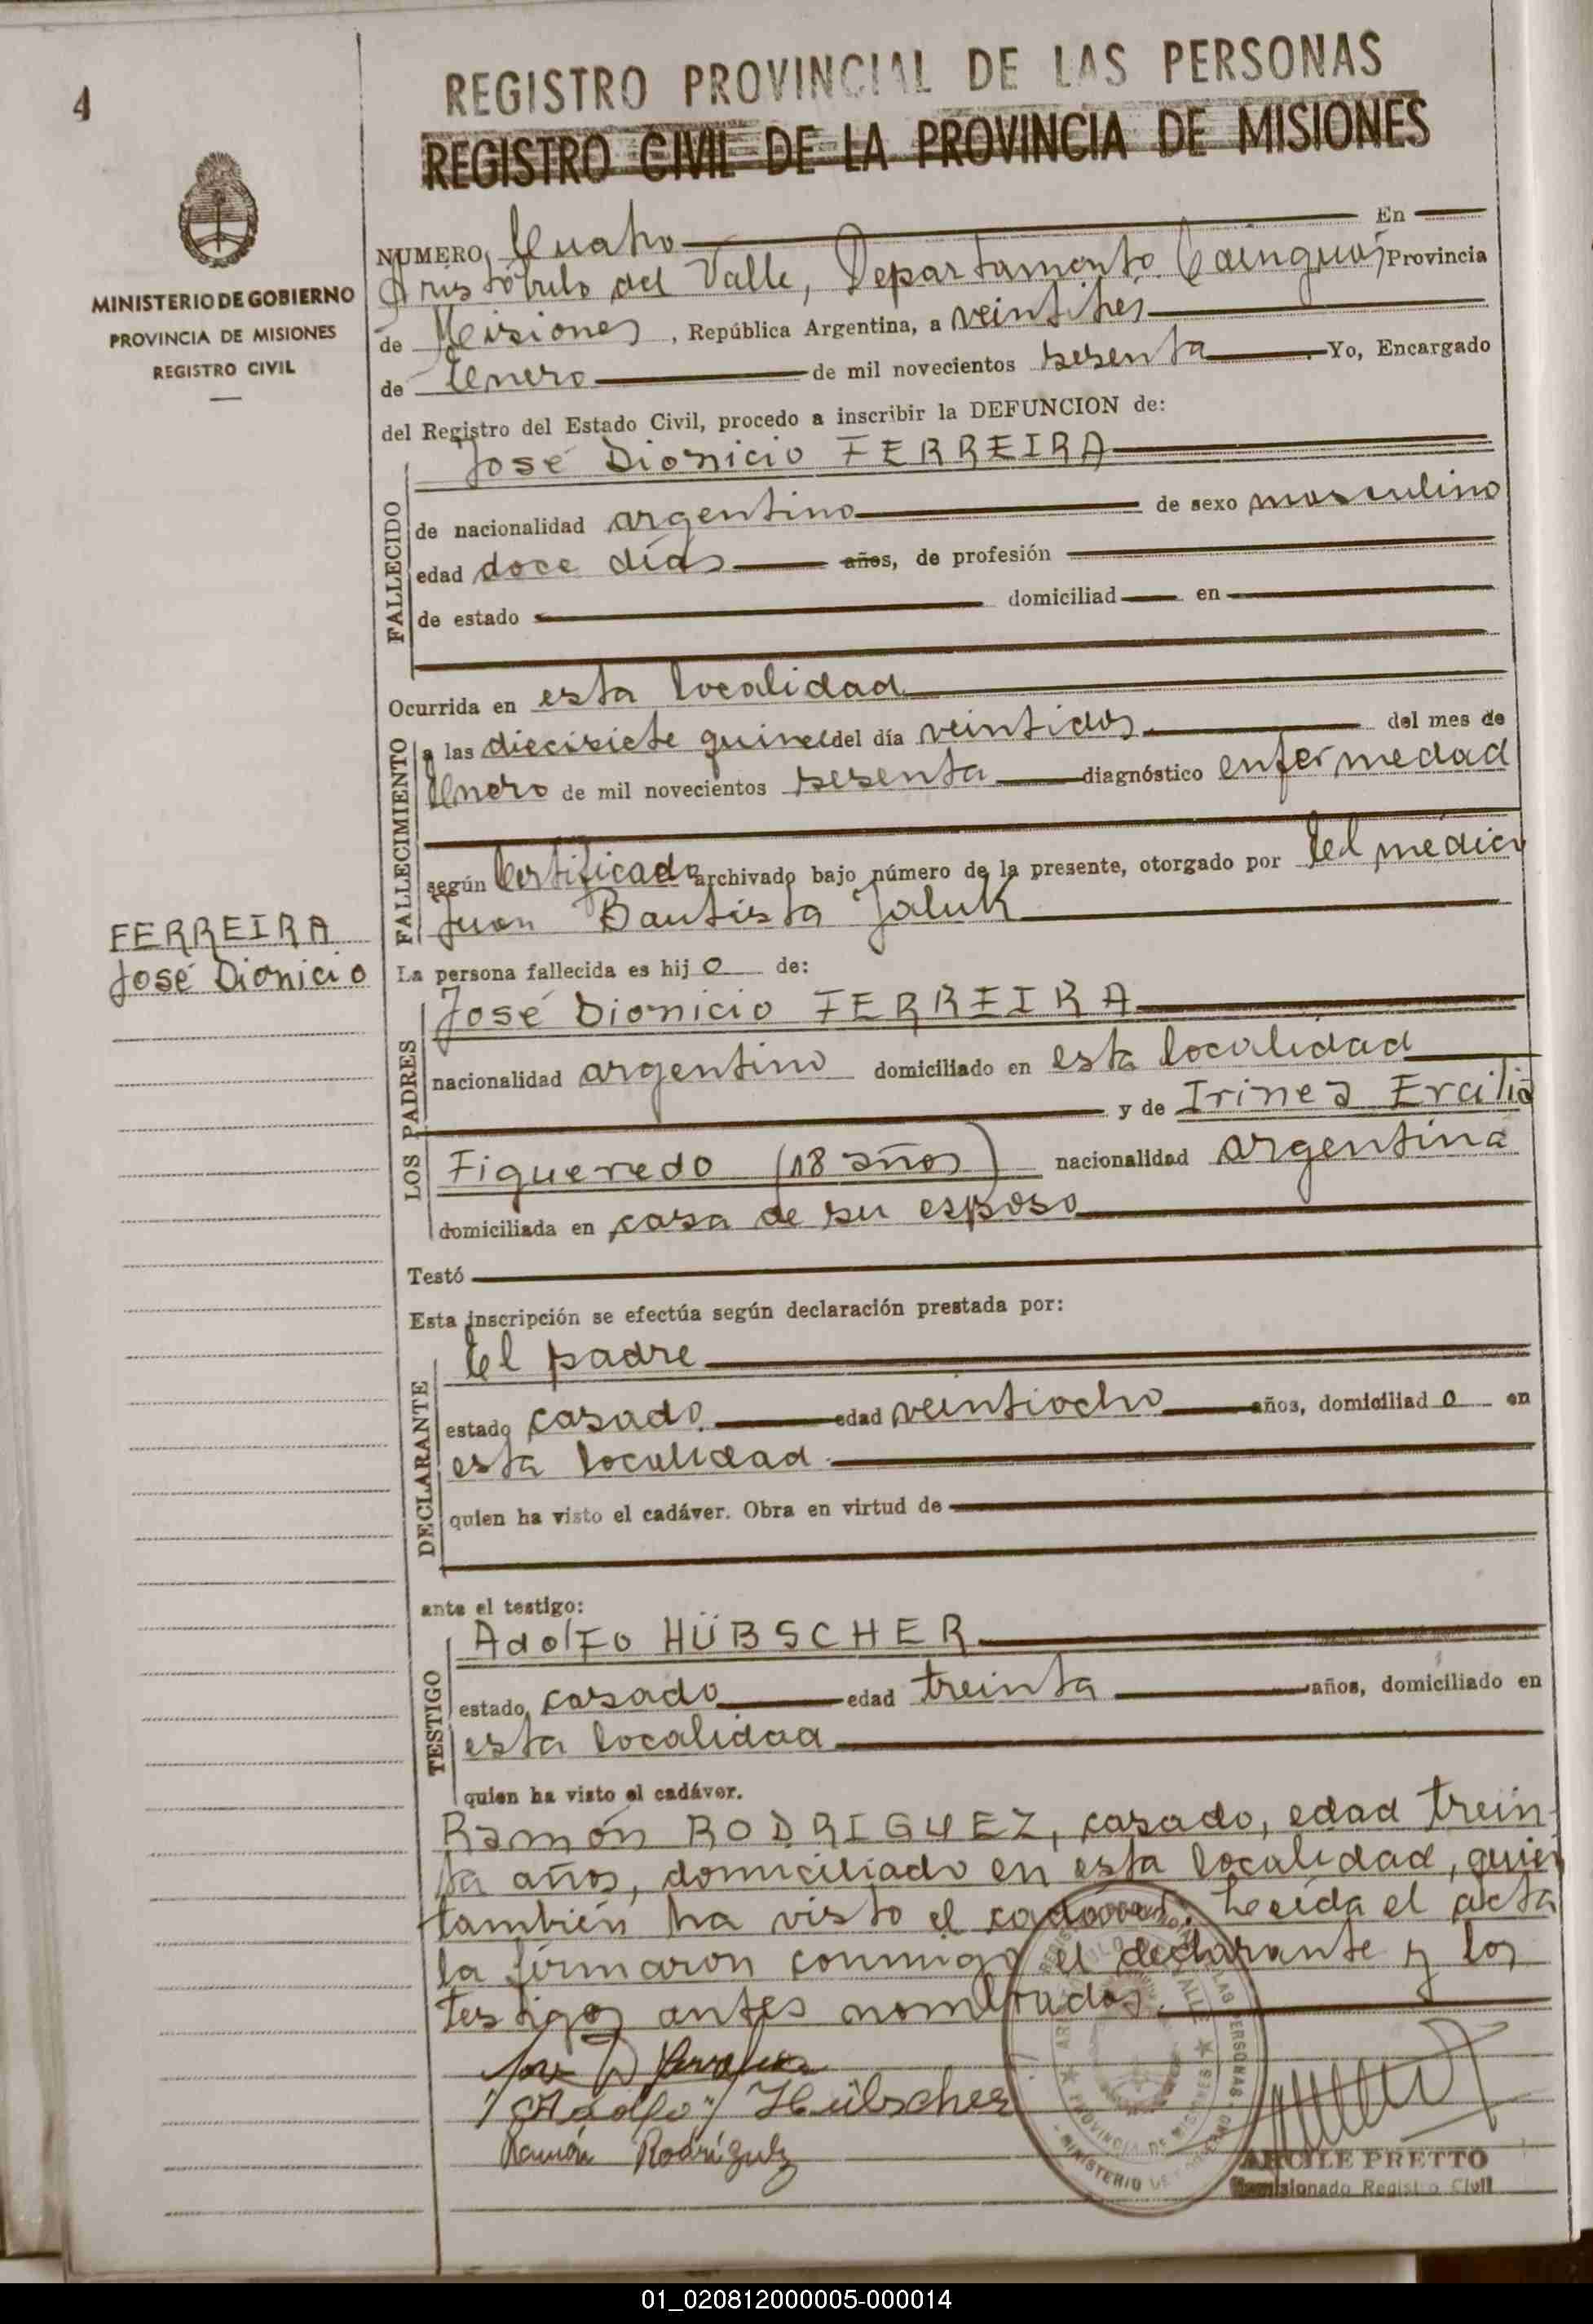 4
REGISTRO PROVINCIAL DE LAS PERSONAS
REGISTRO CIVIL DE LA PROVINCIA DE MISIONES
MINISTERIO DE GOBIERNO
PROVINCIA DE MISIONES
REGISTRO CIVIL
NUMERO Cuatro En
Aristóbulo del Valle, Departamento Cainguás Provincia
de Misiones, República Argentina, a veintitres
de Enero de mil novecientos sesenta. Yo, Encargado
del Registro del Estado Civil, procedo a inscribir la DEFUNCION de:
FALLECIDO
José Dionicio FERREIRA
de nacionalidad argentino de sexo masculino
edad doce días años, de profesión
de estado domiciliad en
Ocurrida en esta localidad
FALLECIMIENTO
a las diecisiete quince del día veintidos del mes de
Enero de mil novecientos sesenta diagnóstico enfermedad
según Certificado archivado bajo número de la presente, otorgado por el médico
Juan Bautista Jaluk
FERREIRA
José Dionicio
La persona fallecida es hijo de:
LOS PADRES
José Dionicio FERREIRA
nacionalidad argentino domiciliado en esta localidad
y de Irinea Ercilia
Figueredo (18 años) nacionalidad argentina
domiciliada en casa de su esposo
Testó
Esta inscripción se efectúa según declaración prestada por:
DECLARANTE
El padre
estado casado. edad veintiocho años, domiciliado en
esta localidad
quien ha visto el cadáver. Obra en virtud de
ante el testigo:
TESTIGO
Adolfo HÜBSCHER
estado casado edad treinta años, domiciliado en
esta localidad
quien ha visto el cadáver.
Ramón RODRIGUEZ, casado, edad trein-
ta años, domiciliado en esta localidad, quien
también ha visto el cadáver. Leída el acta
la firmaron conmigo el declarante y los
testigos antes nombrados.
José D Ferreira
Adolfo Hübscher
Ramón Rodríguez
ARCILE PRETTO
Comisionado Registro Civil
01_020812000005-000014